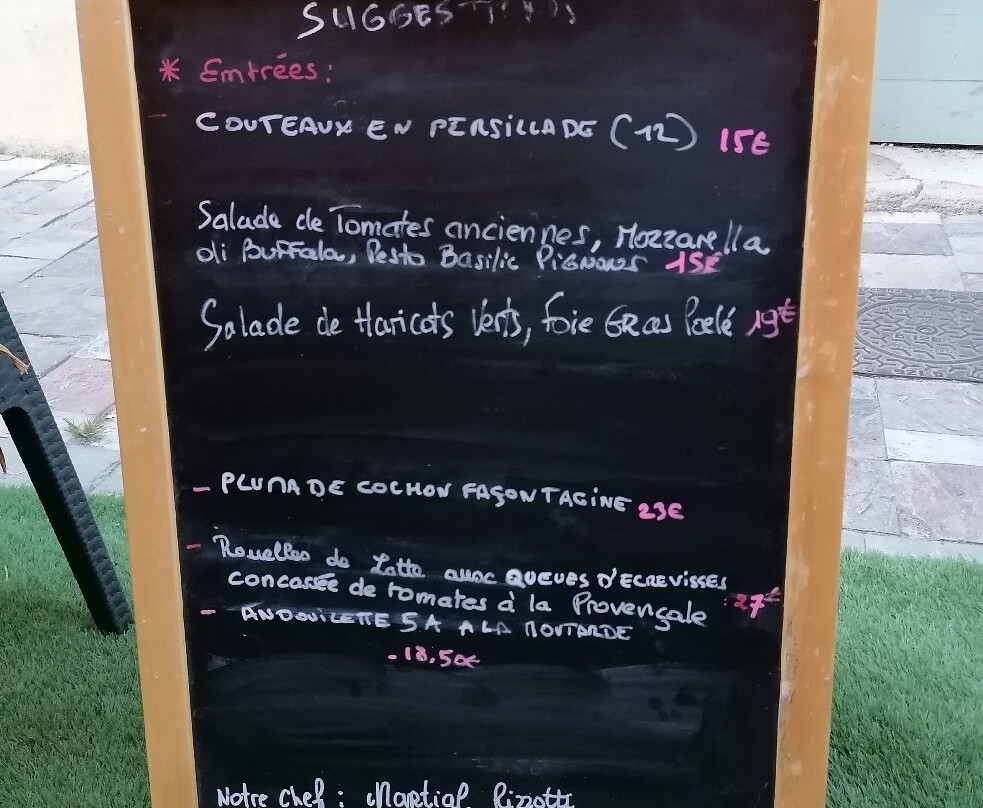 SUGGESTIONS
* Entrées:
- COUTEAUX EN PERSILLADE (12) 15€
Salade de Tomates anciennes, Mozzarella
di Buffala, Pesto Basilic PIGNONS 15€
Salade de Haricots Verts, foie GRas Poelé 19€
- PLUMA DE COCHON FAÇON TAGINE 23€
- Rouelles de Lotte avec QUEUES D'ECREVISSES
concassée de tomates à la Provençale 27€
- ANDOUILETTE 5A A LA MOUTARDE
- 18,50€
Notre chef : Martial Rizzotti